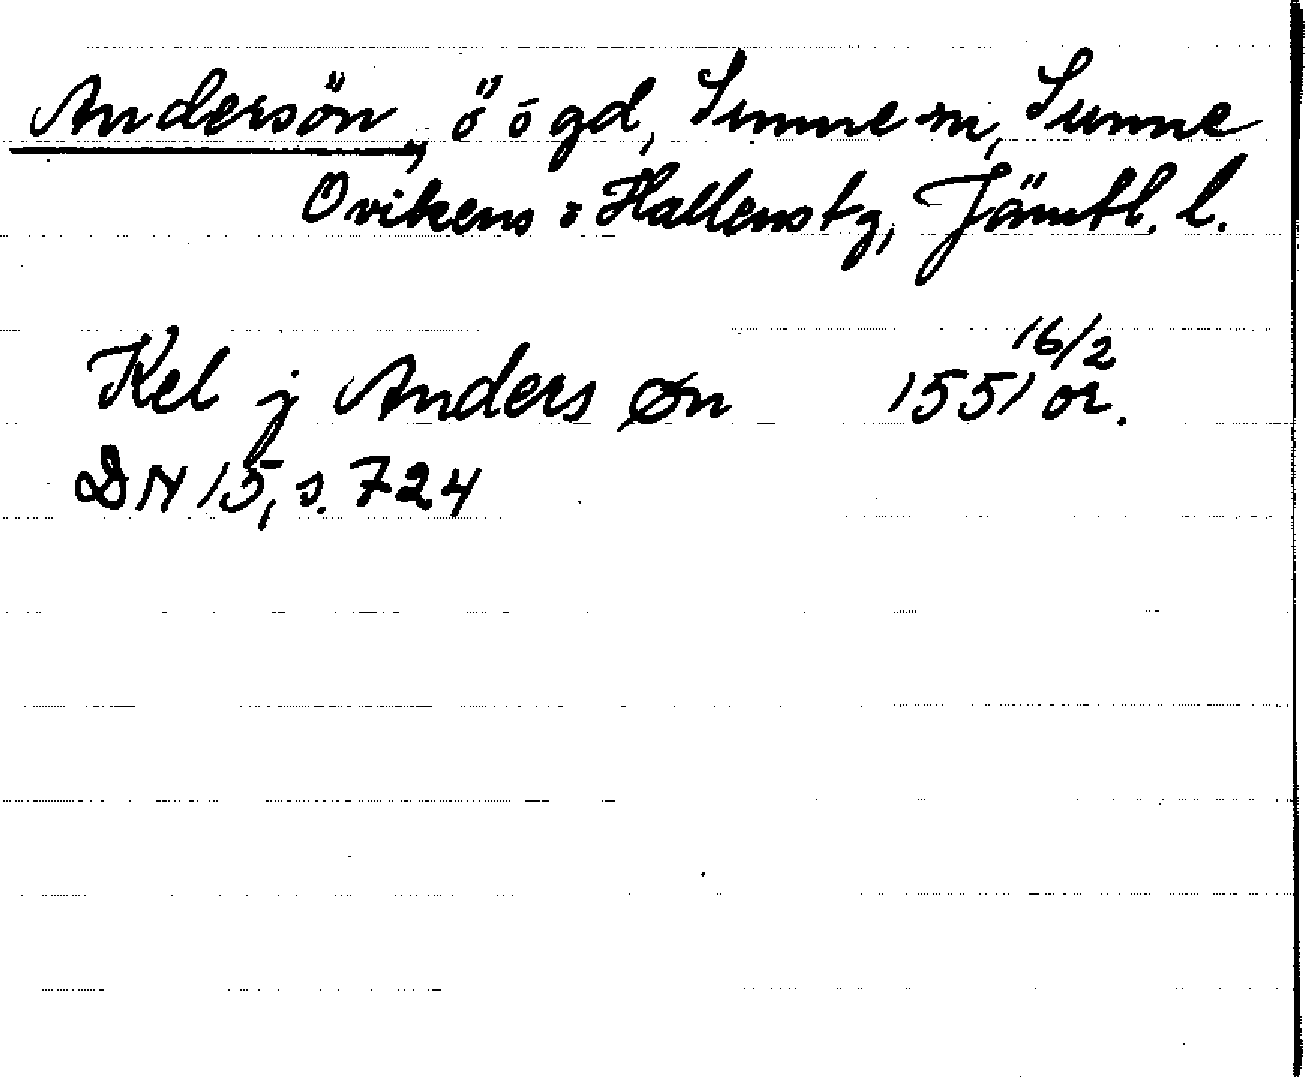 Andersön, ö ó gd, Sunne sn, Sunne
Ovikens o Hallens tg, Jämtl. l.
16/2
Kel j Anders øn 1551 or.
DN 15, s. 724